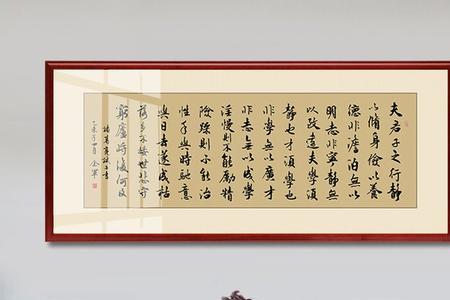 夫君子之行靜
以脩身儉以養
德非澹泊無以
明志非寧靜無
以致遠夫學須
靜也才須學也
非學無以廣才
非志無以成學
淫慢則不能勵精
險躁則不能治
性年與時馳意
與日去遂成枯
落多不接世悲守
窮廬將復何及
諸葛亮誡子書
乙未年四月